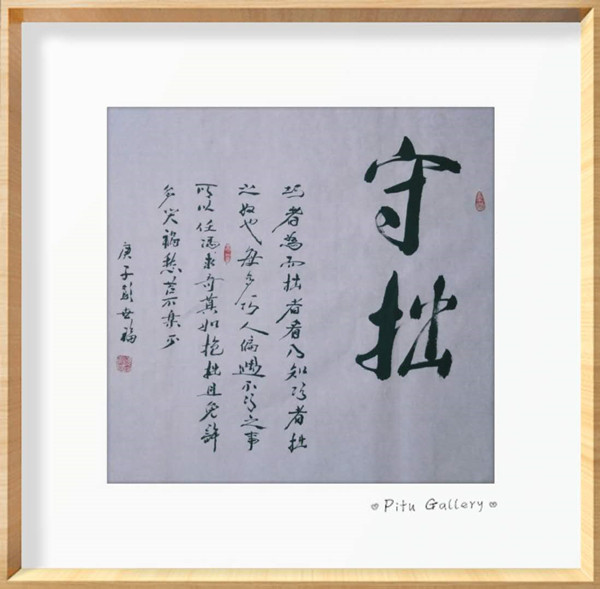 守拙
巧者為而拙者看乃知巧者拙
之奴也每多巧人偏遇不巧之事
所以任馮求奇莫如抱拙且免許
多災禍愁苦不樂乎
庚子世福
Pitu Gallery